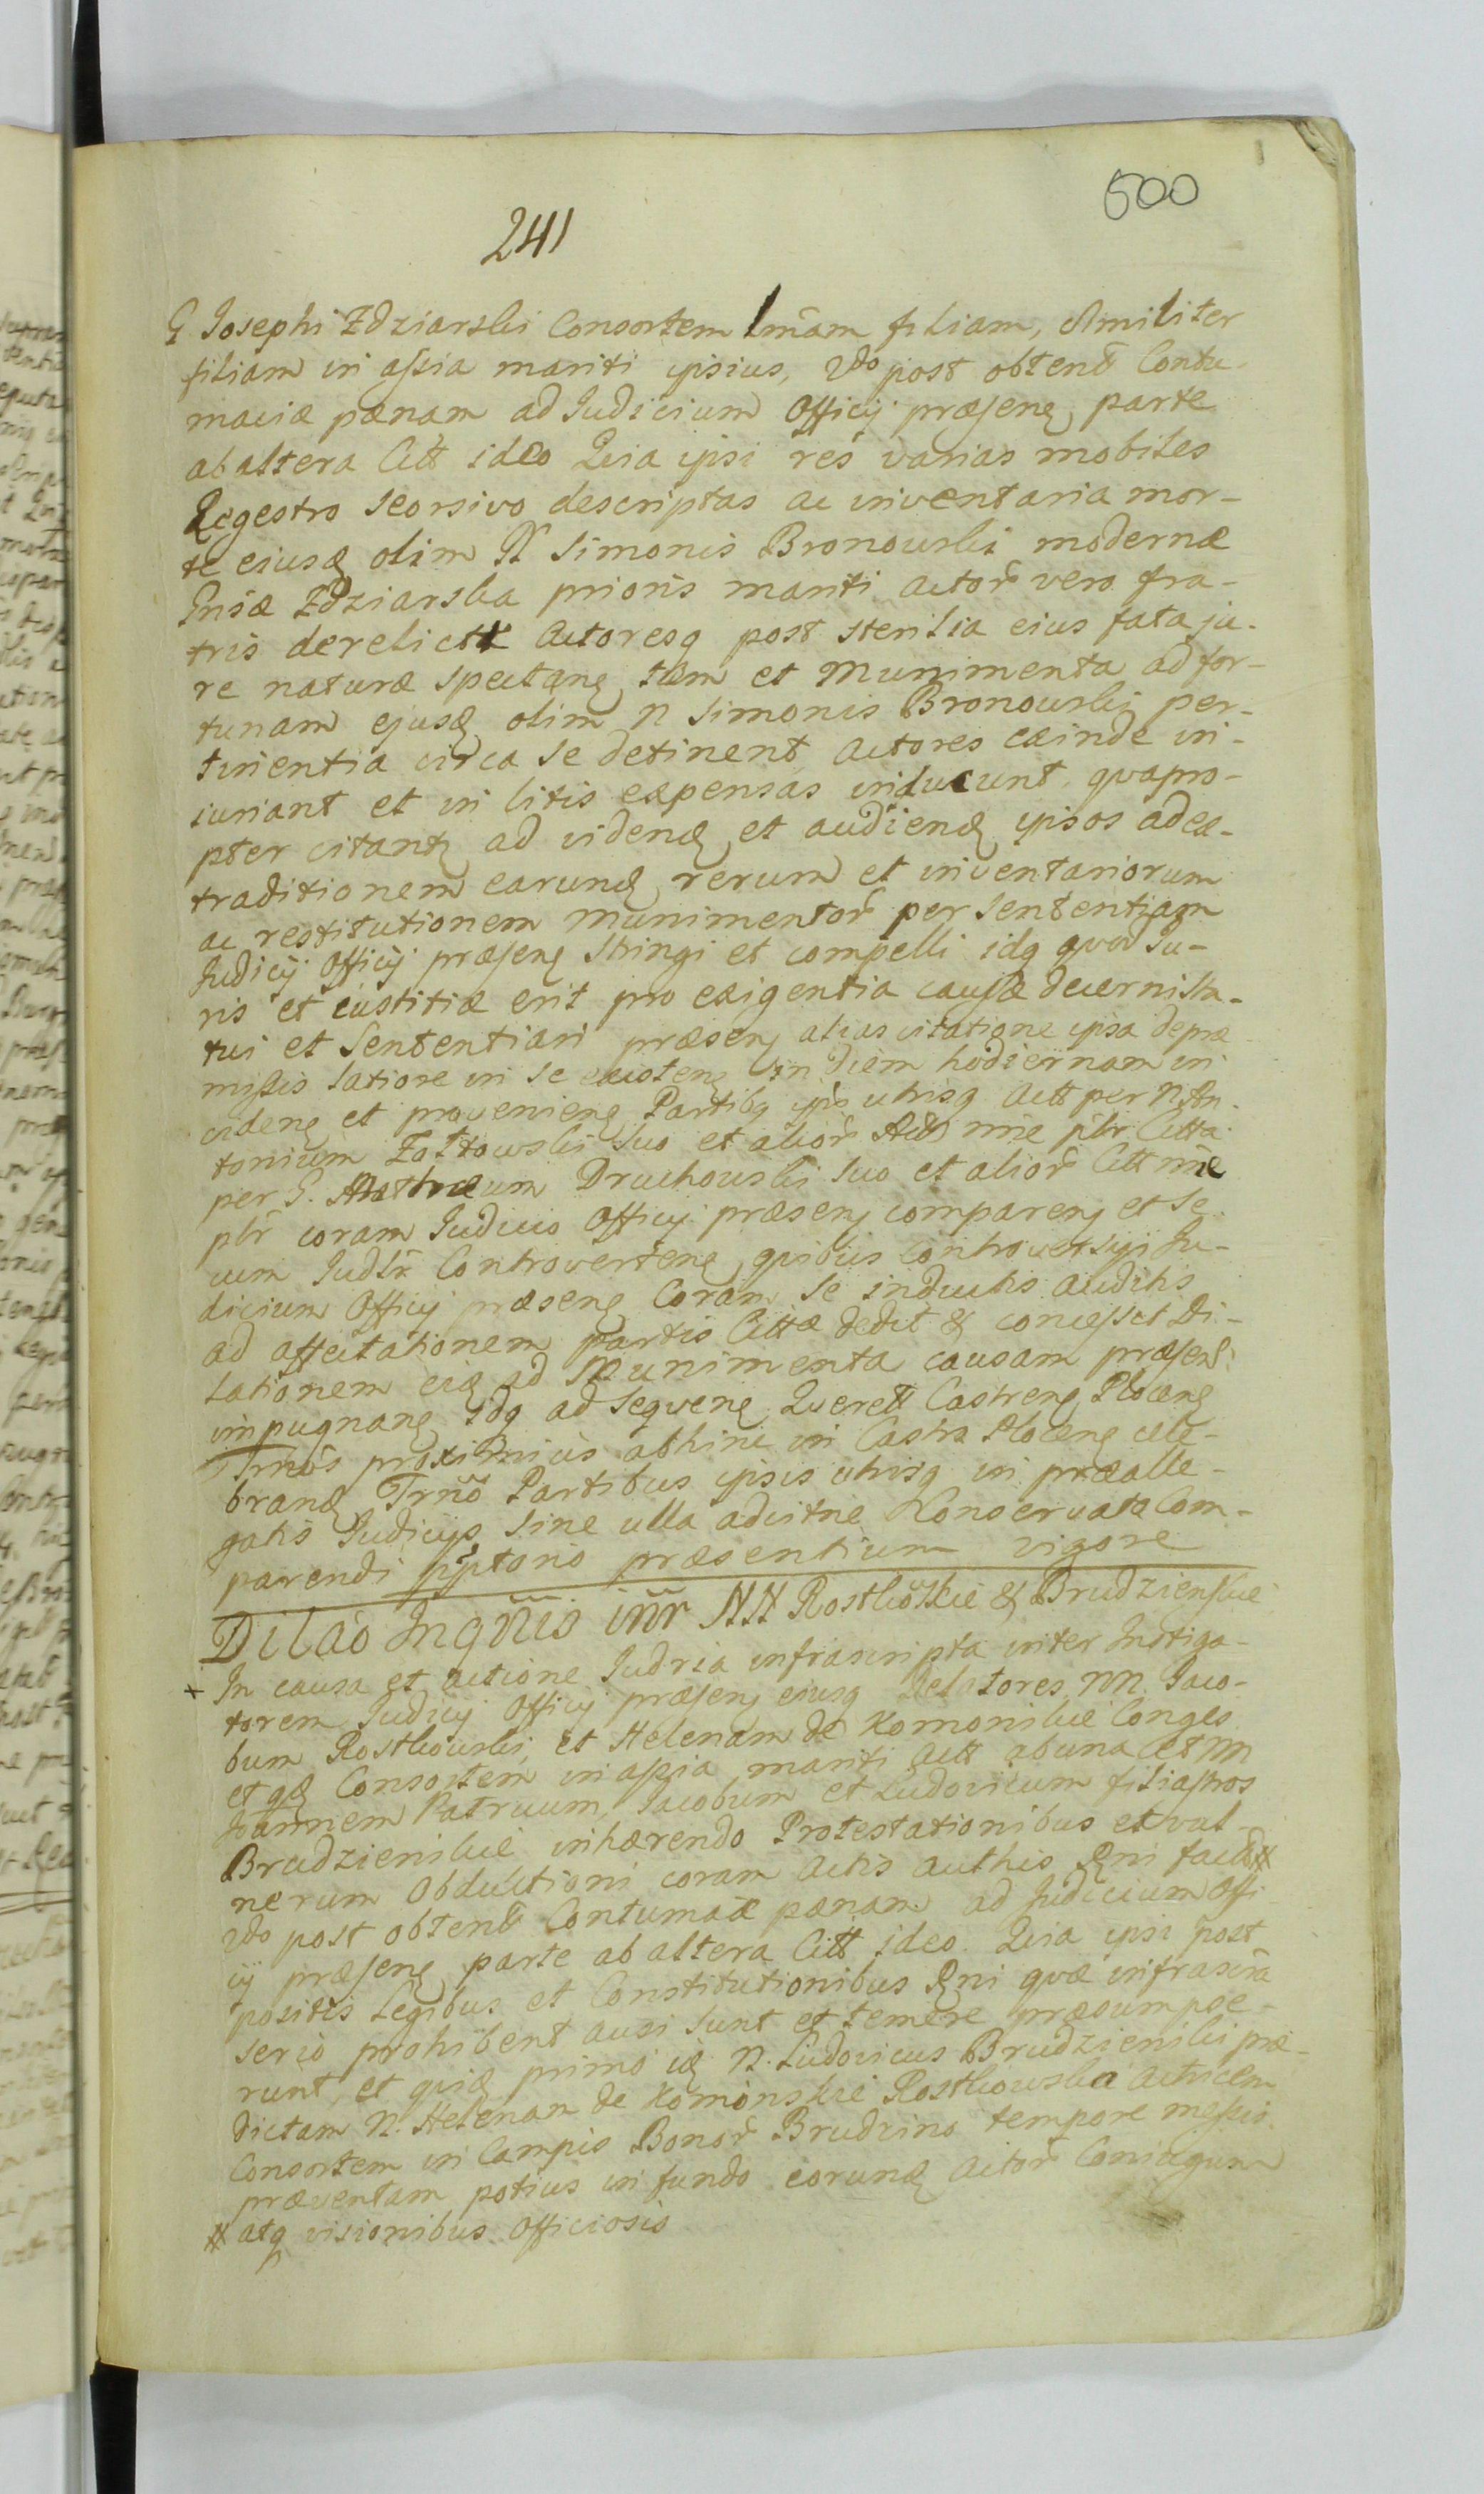 500
241
G Josephi Zdziarski Consortem lmam filiam, Similiter
filiam in assia mariti ipsius, 2do post obtent Contu-
maciæ pænam ad Judicium Officij præsens parte
ab altera Citt ideo Quia ipsi res varias mobiles
Regestro seorsivo descriptas ac inventaria mor-
te eiusd olim N Simonis Bronowski modernæ
Gnsæ Zdziarska prioris mariti Actor vero fra-
tris derelicta Actoresq post sterilia eius fata ju-
re naturæ spectang tum et Munimenta ad for-
tunam ejusd olim N Simonis Bronowski per-
tinentia circa se detinent, Actores exinde in-
iuriant et in litis expensas inducunt, qvapro-
pter citant ad vidend et audiend ipsos ad ex-
traditionem earund rerum et inventariorum
ac restitutionem munimentor per Sententiam
Judicij Officij præsens stringi et compelli idq qvod Ju-
ris et iustitiæ erit pro exigentia causæ decerni sta-
tui et Sententiari præsens alias citatione ipsa depræ
missis latiore in se existens in diem hodiernam in
cidens et proveniens Partibq ipis utrisq Actt per N An-
tonium Zottowski suo et alior Actt nne plr Citta
per G. Mathæum Druchowski suo et alior Citt nne
plr coram Judicio Officij præsens comparens et se
cum Judlr Controvertens, qvibus Controversijs Ju-
dicium Officij præsens Coram se inductis auditis
ad affectationem partis Cittæ dedit & concessit Di-
lationem eid ad Munimenta causam præsent
impugnang idq ad Seqvens Querell Castrens Plocens
Trnos proximius abhinc in Castro Plocens cele-
brand Trno Partibus ipsis utrisq in præalle-
gatis Judicijs sine ulla adcitne Conservato Com-
parendi pptorio præsentium vigore
Dilão Inqñis iñr NN Rostkowskie & Brudzienskie
+ In causa et actione Judria infrascripta inter Instiga-
torem Judicij Officij præsens eiusq Delatores NN. Jaco-
bum Rostkowski, et Helenam de Komonskie Conges
et qd Consortem in assia mariti Actt ab una et NN
Joannem Patruum, Jacobum et Ludovicum filiastros
Brudzienskie inhærendo Protestationibus et vul-
nerum Obductioni coram Actis Authis Rni fact #
2do post obtent Contumaciæ pænam ad Judicium Offi
cij præsens parte ab altera Citt ideo Quia ipsi post
positis Legibus et Constitutionibus Rni qvæ infrascra
serio prohibent ausi sunt et temere præsumpse-
runt, et qvid primo id N. Ludovicus Brudzienski præ-
dictam N. Helenam de Komonskie Rostkowska Actricem
Consortem in Campis Bonor Brudzino tempore messis
præventam potius in fundo eorund Actor Coniugum
# atq visionibus Officiosis